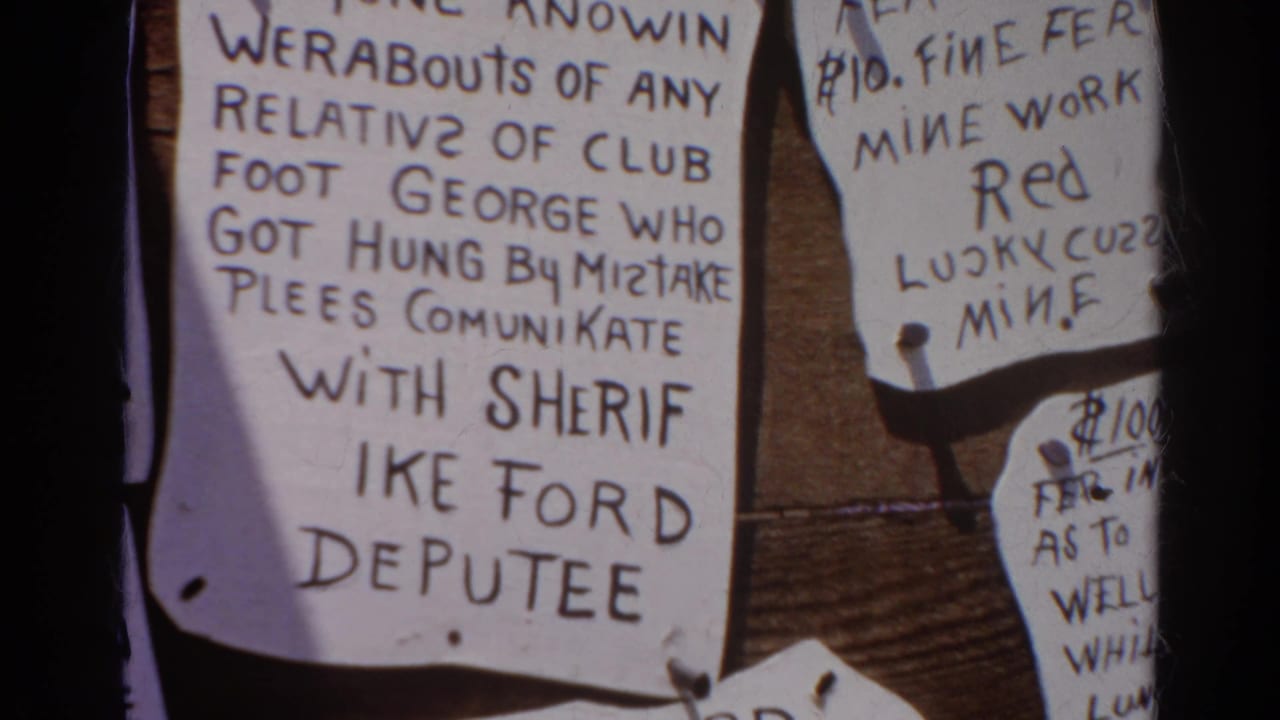 KNOWIN
WERABOUTS OF ANY
RELATIVS OF CLUB
FOOT GEORGE WHO
GOT HUNG By MISTAKE
PLEES COMUNIKATE
WiTH SHERIF
IKE FORD
DEPUTEE
$10. FiNE FER
MiNE WORK
Red
LUCKY CUSS
MiN.E
$100
FER IN
AS TO
WELL